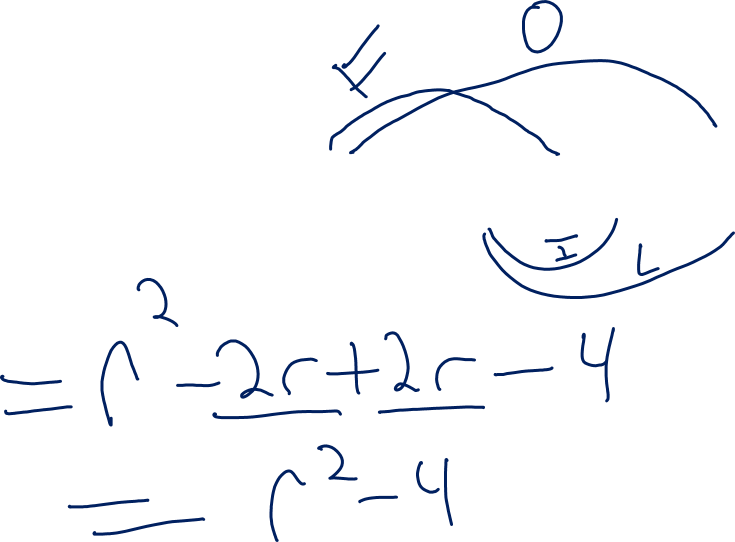 F O
I L
= r² - 2r + 2r - 4
= r² - 4